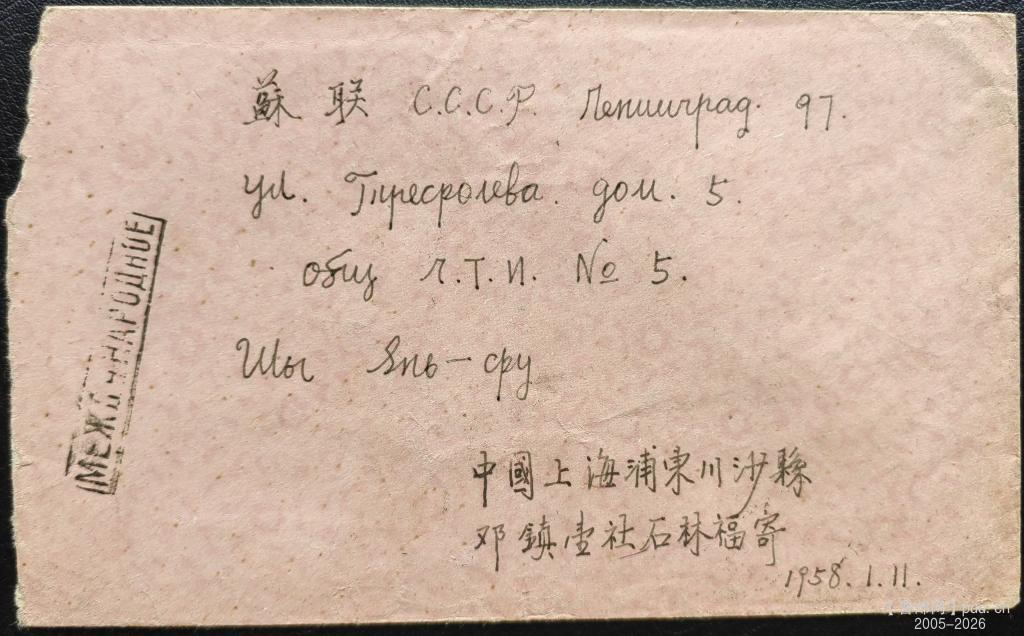 蘇联 С.С.С.Р. Ленинград. 97.
ул. Тпрефолева. дом. 5.
общ Л.Т.И. № 5.
Шы Янь-фу
中國上海浦東川沙縣
邓鎮壹社石林福寄
1958.1.11.
МЕЖДУНАРОДНОЕ
2005-2026